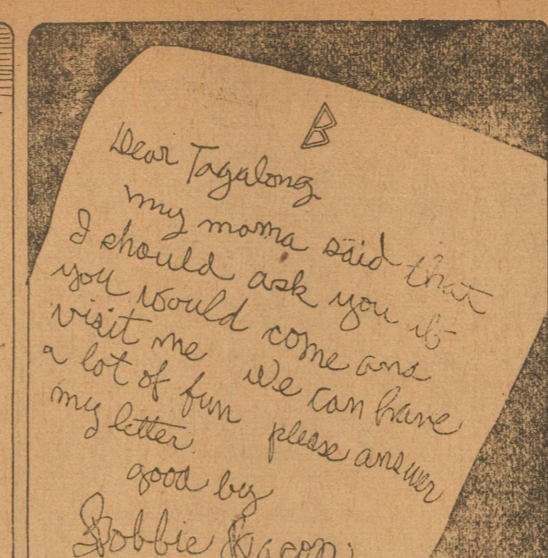 B
Dear Tagalong
my moma said that
I should ask you if
you would come and
visit me We can have
a lot of fun please answer
my letter
good by
Bobbie Bacon